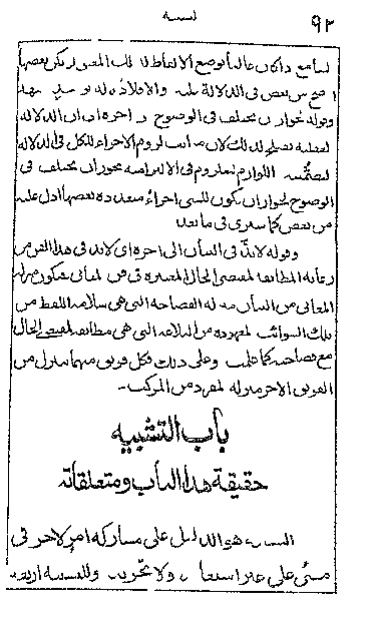 ٩٢
السامع اذا كان عالما بوضع الالفاظ لذلك المعنى لم يكن بعضها
اوضح من بعض فى الدلالة عليه والا فلا دلالة
وقوله لجواز ان يختلف فى الوضوح الى اخره اذ ان الدلالة
العقلية تصلح لذلك لان مراتب لزوم الاجزاء للكل فى الدلالة
التضمنية اللوازم للملزوم فى الالتزامية يجوز ان يختلف فى
الوضوح لجواز ان يكون للشىء اجزاء متعددة بعضها ادل عليه
من بعض كما سترى فى ما بعد
وقوله لابد فى البيان الى اخره اى لابد فى هذا الفن من
رعاية المطابقة لمقتضى الحال المعتبرة فى فن المعانى فتكون منزلة
المعانى من البيان منزلة الفصاحة التى هى سلامة اللفظ من
تلك الشوائب من البلاغة التى هى مطابقة لمقتضى الحال
مع فصاحته كما علمت وعلى ذلك فكل فريق منهما ينزل من
الفريق الاخر منزلة المفرد من المركب
باب التشبيه
حقيقة هذا الباب ومتعلقاته
التشبيه هو الدليل على مشاركة امر لاخر فى
معنى على غير استعارة ولا تجريد وللتشبيه اربعة